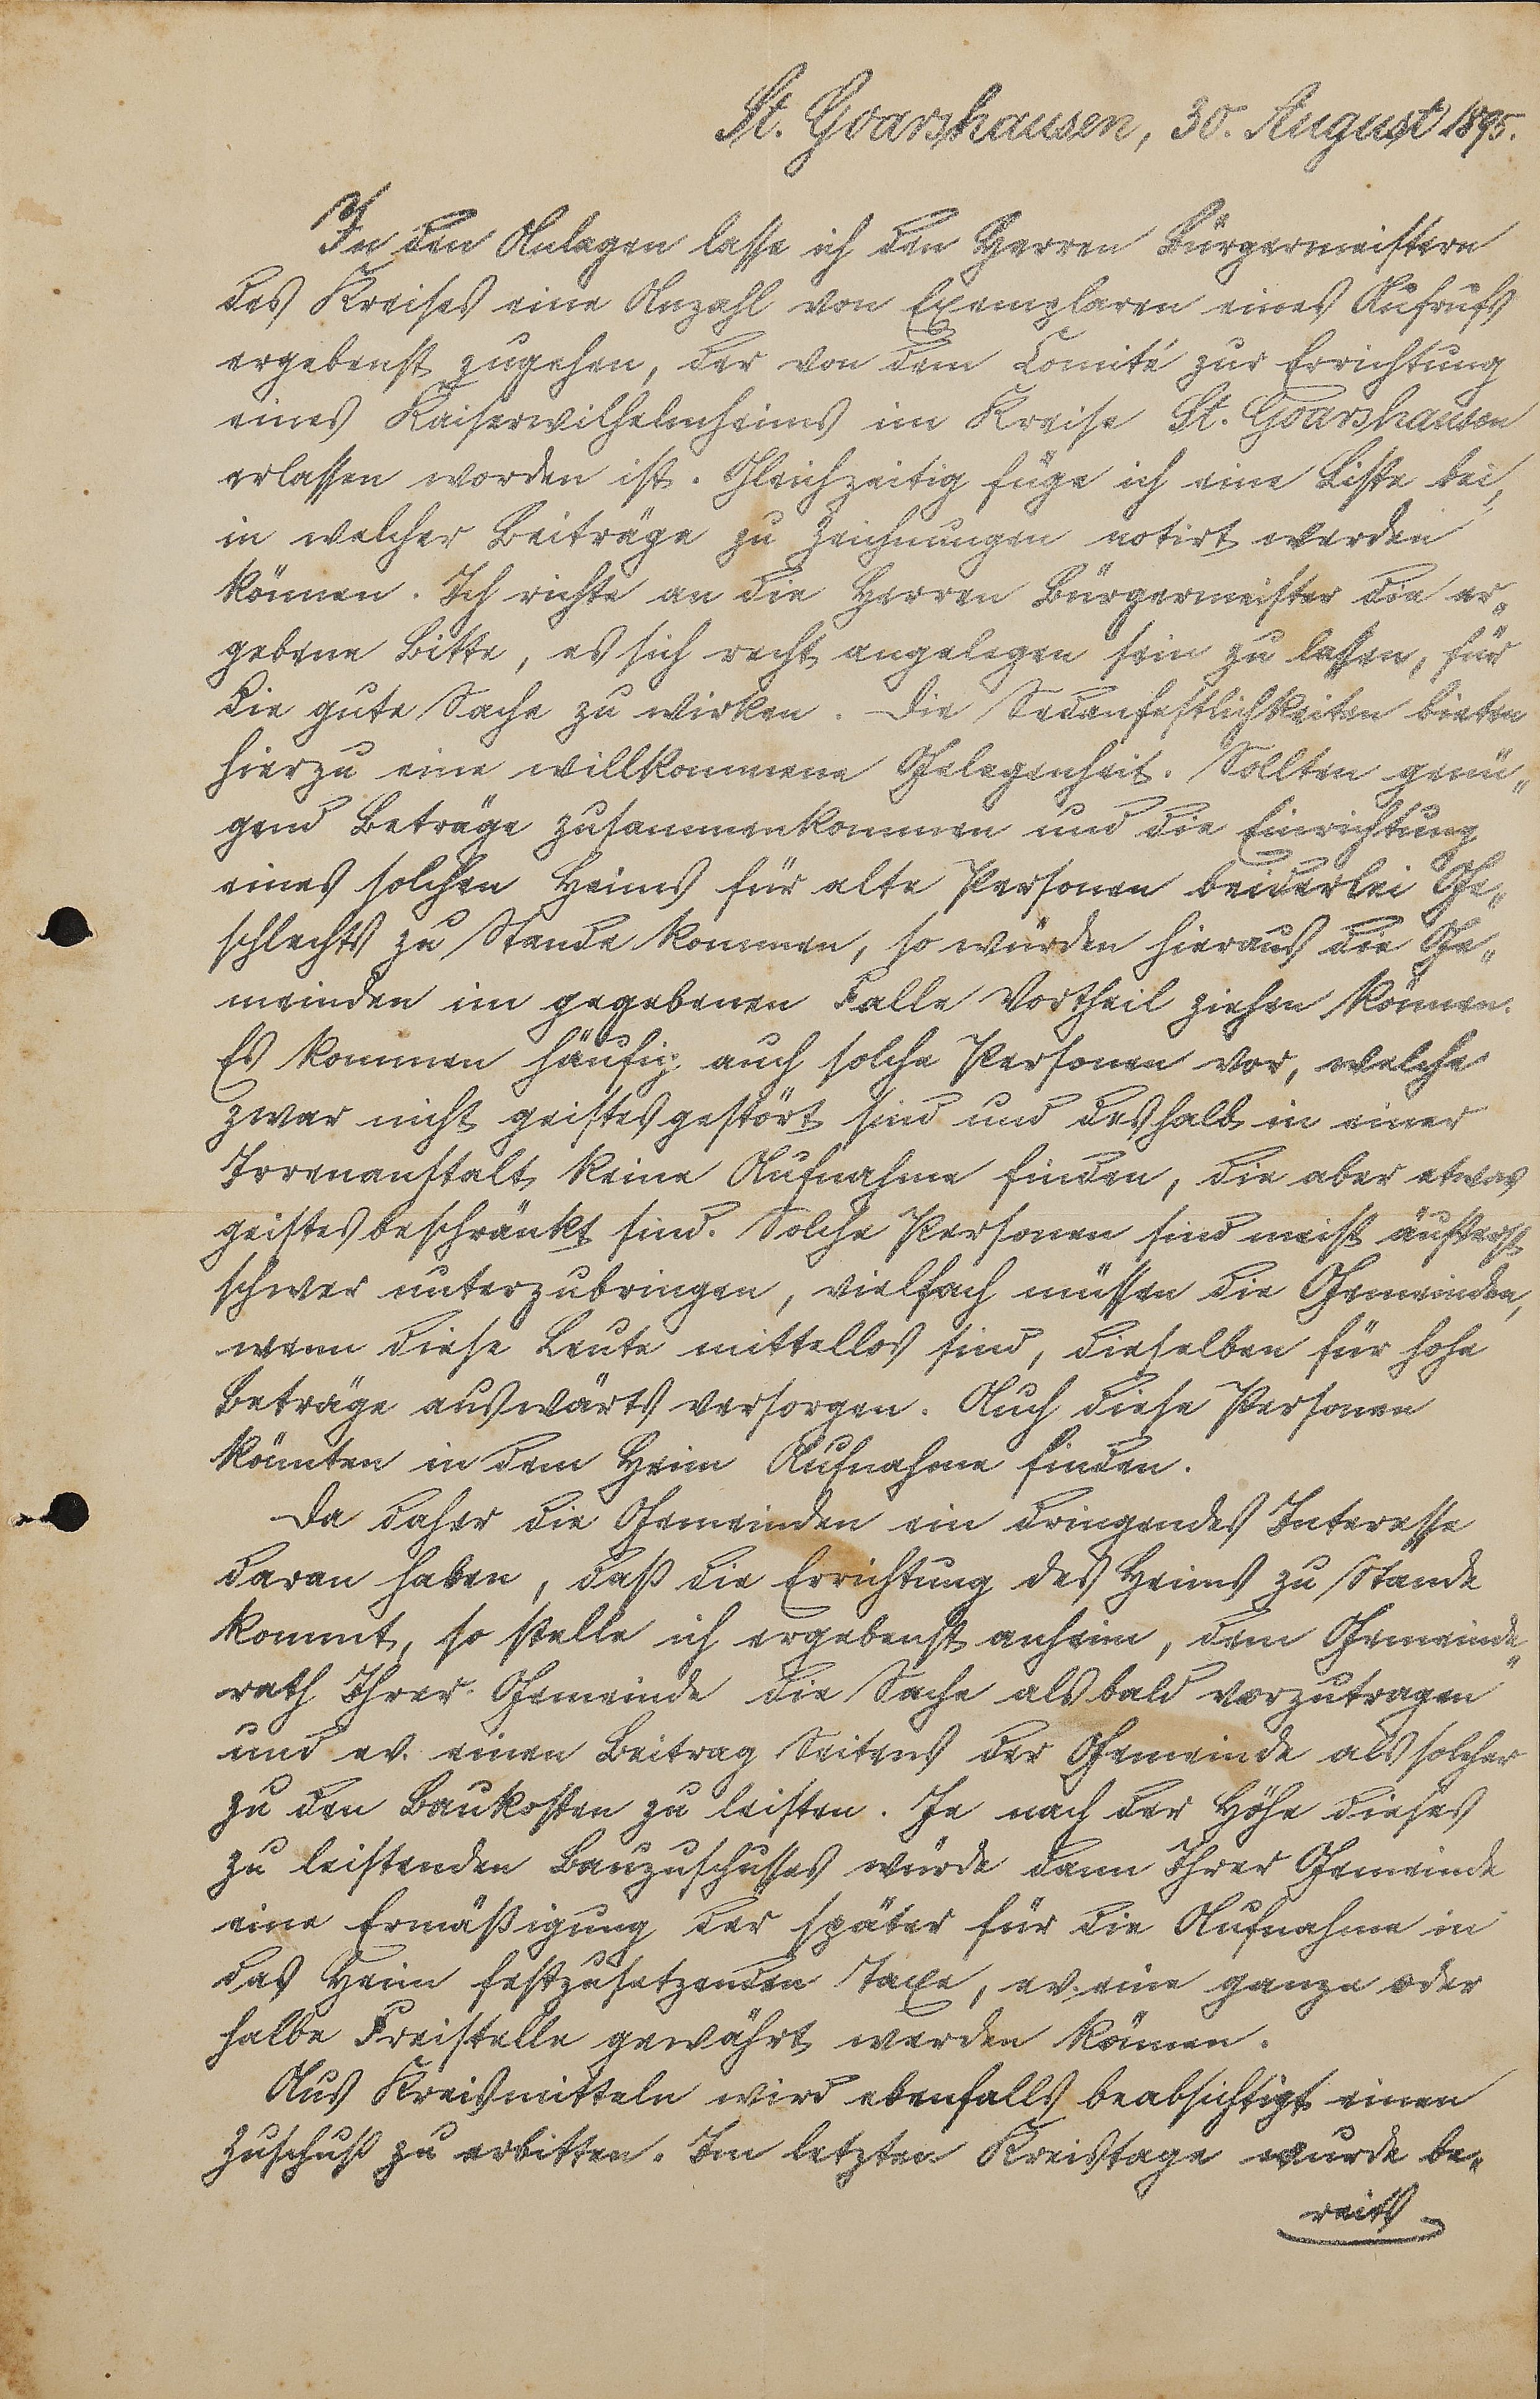 St. Goarshausen, 30. August 1895.
In den Anlagen lasse ich den Herren Bürgermeistern
des Kreises eine Anzahl von Exemplaren eines Aufrufs
ergebenst zugehen, der von dem Comité zur Errichtung
eines Kaiserwilhelmheims im Kreise St. Goarshausen
erlassen worden ist. Gleichzeitig füge ich eine Liste bei,
in welcher Beiträge zu Zeichnungen notirt werden
können. Ich richte an die Herren Bürgermeister die er„
gebene Bitte, es sich recht angelegen sein zu lassen, für
die gute Sache zu wirken. Die Sedanfestlichkeiten bieten
hierzu eine willkommene Gelegenheit. Sollten genü„
gend Beträge zusammenkommen und die Einrichtung
eines solchen Heims für alte Personen beiderlei Ge„
schlechts zu Stande kommen, so würden hieraus die Ge„
meinden im gegebenen Falle Vortheil ziehen können.
Es kommen häufig auch solche Personen vor, welche
zwar nicht geistesgestört sind und deshalb in einer
Irrenanstalt keine Aufnahme finden, die aber etwas
geistesbeschränkt sind. Solche Personen sind meist äußerst
schwer unterzubringen, vielfach müssen die Gemeinden,
wenn diese Leute mittellos sind, dieselben für hohe
Beträge auswärts versorgen. Auch diese Personen
könnten in dem Heim Aufnahme finden.
Da daher die Gemeinden ein dringendes Interesse
daran haben, daß die Errichtung des Heims zu Stande
kommt, so stelle ich ergebenst anheim, dem Gemeinde„
rath Ihrer Gemeinde die Sache alsbald vorzutragen
und ev. einen Beitrag Seitens der Gemeinde als solcher
zu den Baukosten zu leisten. Je nach der Höhe dieses
zu leistenden Bauzuschusses würde dann Ihrer Gemeinde
eine Ermäßigung der später für die Aufnahme in
das Heim festzusetzenden Taxe, ev. eine ganze oder
halbe Freistelle gewährt werden können.
Aus Kreismitteln wird ebenfalls beabsichtigt einen
Zuschuß zu erbitten. Im letzten Kreistage wurde be„
reits